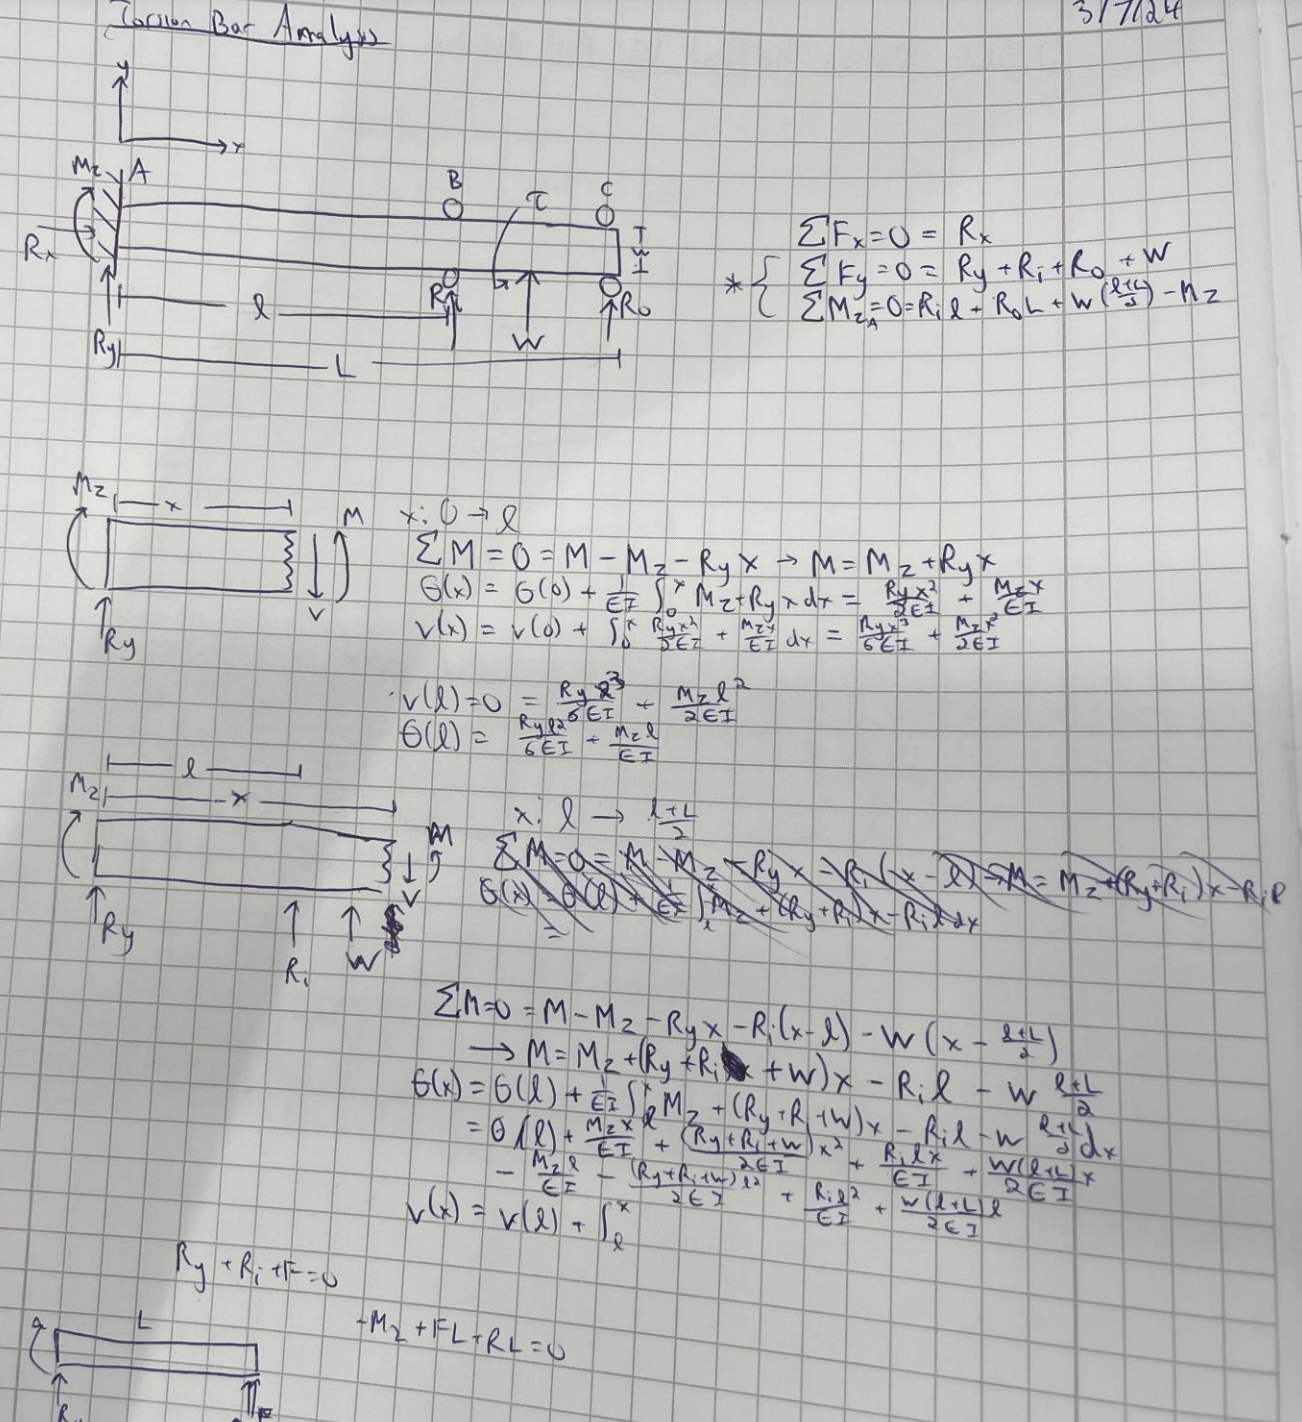 Torsion Bar Analysis
3/7/24
y
x
Mz A
B
τ
C
Rx
I
W
I
ΣFx=0 = Rx
* { ΣFy=0 = Ry + Ri + Ro + W
ΣMzA=0=Ril + RoL + W(l+L/2) - Mz
l
Ri
W
Ro
Ry
L
Mz
x
M
V
Ry
x: 0 → l
ΣM=0=M-Mz-Ryx → M=Mz+Ryx
θ(x) = θ(0) + 1/EI ∫0^x Mz+Ryx dx = Ryx²/2EI + Mzx/EI
v(x) = v(0) + ∫0^x Ryx²/2EI + Mzx/EI dx = Ryx³/6EI + Mzx²/2EI
v(l)=0 = Ryl³/6EI + Mzl²/2EI
θ(l) = Ryl²/6EI + Mzl/EI
l
Mz
x
M
V
Ry
Ri
W
x: l → l+L/2
ΣM=0=M-Mz-Ryx-Ri(x-l)→M=Mz+(Ry+Ri)x-Ril
θ(x)=θ(l)+1/EI ∫l^x Mz+(Ry+Ri)x-Ril dx
=
ΣM=0=M-Mz-Ryx-Ri(x-l)-W(x-l+L/2)
→ M=Mz+(Ry+Ri+W)x-Ril-W l+L/2
θ(x)=θ(l)+1/EI ∫l^x Mz+(Ry+Ri+W)x-Ril-W l+L/2 dx
=θ(l)+Mzx/EI+(Ry+Ri+W)/2EI x²+Rilx/EI+W(l+L)x/2EI
-Mzl/EI-(Ry+Ri+W)l²/2EI+Ril²/EI+W(l+L)l/2EI
v(x)=v(l)+∫l^x
Ry+Ri+F=0
L
-Mz+FL+RL=0
F